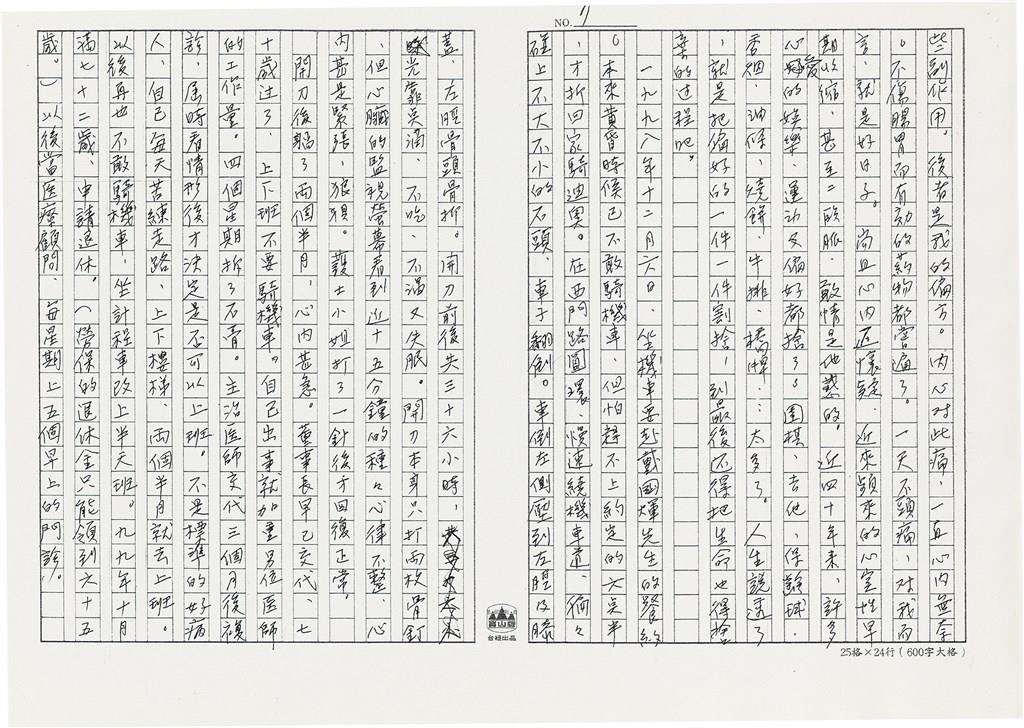 NO. 7
些副作用。後者是我的偏方。內心对此痛,一直心內無奈
。不傷腸胃而有効的葯物都嘗遍了。一天不頭痛,对我而
言,就是好日子。尚且心內近懷疑,近來頻來的心室性早
期收縮,甚至二砍脈,敢情是地惹的。近四十年來,許多
心愛的娛樂、運动又偏好都捨了。圍棋、去他、保齡球、
香烟、油條、燒餅、牛排、檳榔⋯⋯太多了。人生說透了
,就是把偏好的一件一件割捨,到最後還得把生命也得捨
棄的过程吧。
一九九八年十二月六日,坐機車要赴戴國煇先生的餐約
。本來黃昏時候已不敢騎機車,但怕趕不上約定的六点半
,才折回家騎迪奧。在西門路圓環,慢速繞機車道,偏々
碰上不大不小的石頭,車子翻倒。車倒左側壓到左腿及膝
蓋,左脛骨頭骨折。開刀前後共三十六小時,
光靠吴滴,不吃、不渴又失眠。開刀本身只打兩枚骨釘
,但心臟的監視螢幕看到近十五分鐘的種々心律不整,心
內甚是緊張、狼狽。護士小姐打了一針後才回復正常。
開刀後躺了兩個半月,心內甚急。董事長早已交代、七
十歲过了,上下班不要騎機車。自己出事就加重另位医師
的工作量。四個星期拆了石膏。主治医師交代三個月後複
診,屆時看情形後才決定是否可以上班。不是標準的好病
人,自己每天苦練走路、上下樓梯,兩個半月就去上班。
以後再也不敢騎機車,坐計程車改上半天班。九九年十月
滿七十二歲,申請退休。(勞保的退休金只能領到六十五
歲。)以後當医療顧問,每星期上五個早上的門診。
台紙出品
25格×24行(600字大格)